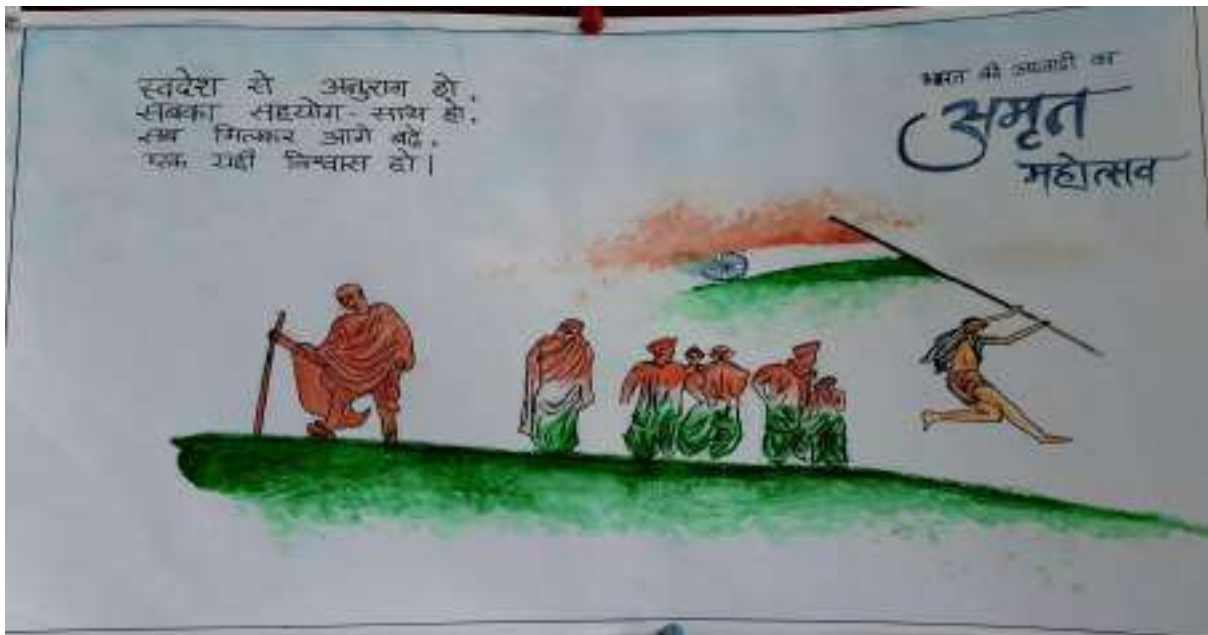 स्वदेश से अनुराग हो,
सबका सहयोग-साथ हो,
सब मिलकर आगे बढ़े,
एक यही विश्वास हो।
भारत की आजादी का
अमृत
महोत्सव